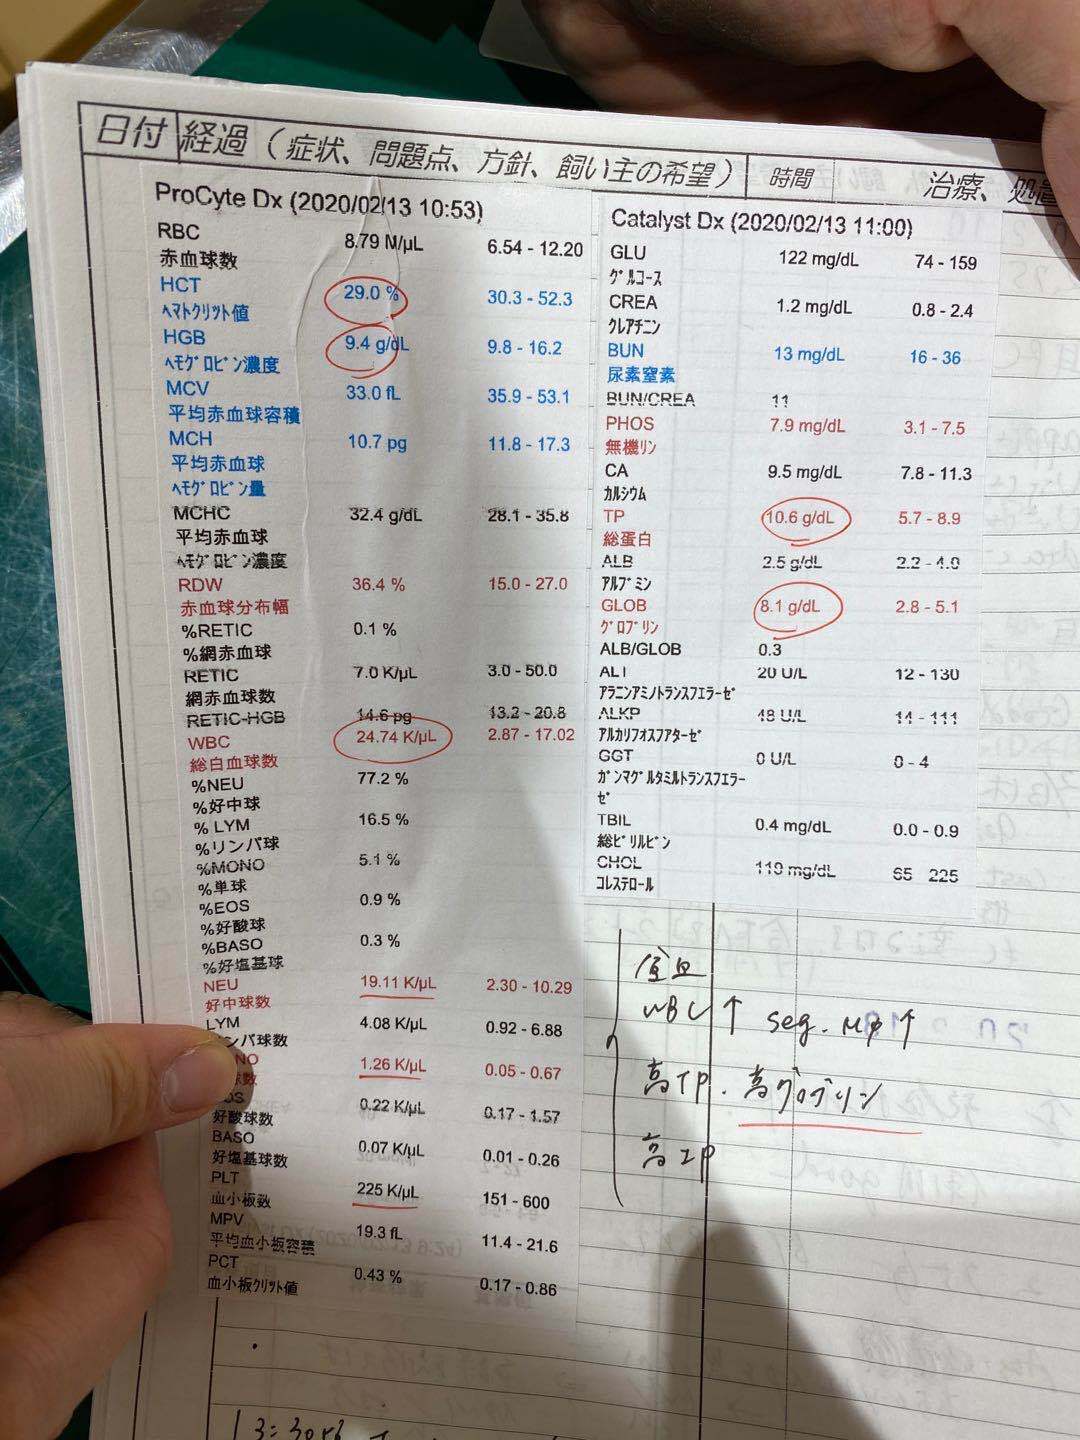 日付 経過（症状、問題点、方針、飼い主の希望） 時間 治療、処置
ProCyte Dx (2020/02/13 10:53)
RBC 8.79 M/µL 6.54 - 12.20
赤血球数
HCT 29.0 % 30.3 - 52.3
ﾍﾏﾄクリット値
HGB 9.4 g/dL 9.8 - 16.2
ﾍﾓｸﾞﾛﾋﾞﾝ濃度
MCV 33.0 fL 35.9 - 53.1
平均赤血球容積
MCH 10.7 pg 11.8 - 17.3
平均赤血球
ﾍﾓｸﾞﾛﾋﾞﾝ量
MCHC 32.4 g/dL 28.1 - 35.8
平均赤血球
ﾍﾓｸﾞﾛﾋﾞﾝ濃度
RDW 36.4 % 15.0 - 27.0
赤血球分布幅
%RETIC 0.1 %
%網赤血球
RETIC 7.0 K/µL 3.0 - 50.0
網赤血球数
RETIC-HGB 14.6 pg 13.2 - 20.8
WBC 24.74 K/µL 2.87 - 17.02
総白血球数
%NEU 77.2 %
%好中球
% LYM 16.5 %
%リンパ球
%MONO 5.1 %
%単球
%EOS 0.9 %
%好酸球
%BASO 0.3 %
%好塩基球
NEU 19.11 K/µL 2.30 - 10.29
好中球数
LYM 4.08 K/µL 0.92 - 6.88
ンパ球数
NO 1.26 K/µL 0.05 - 0.67
球数
OS 0.22 K/µL 0.17 - 1.57
好酸球数
BASO 0.07 K/µL 0.01 - 0.26
好塩基球数
PLT 225 K/µL 151 - 600
血小板数
MPV 19.3 fL 11.4 - 21.6
平均血小板容積
PCT 0.43 % 0.17 - 0.86
血小板クリット値
Catalyst Dx (2020/02/13 11:00)
GLU 122 mg/dL 74 - 159
ｸﾞﾙｺｰｽ
CREA 1.2 mg/dL 0.8 - 2.4
ｸﾚｱﾁﾆﾝ
BUN 13 mg/dL 16 - 36
尿素窒素
BUN/CREA 11
PHOS 7.9 mg/dL 3.1 - 7.5
無機ﾘﾝ
CA 9.5 mg/dL 7.8 - 11.3
ｶﾙｼｳﾑ
TP 10.6 g/dL 5.7 - 8.9
総蛋白
ALB 2.5 g/dL 2.2 - 4.0
ｱﾙﾌﾞﾐﾝ
GLOB 8.1 g/dL 2.8 - 5.1
ｸﾞﾛﾌﾞﾘﾝ
ALB/GLOB 0.3
ALT 20 U/L 12 - 130
ｱﾗﾆﾝｱﾐﾉﾄﾗﾝｽﾌｪﾗｰｾﾞ
ALKP 48 U/L 14 - 111
ｱﾙｶﾘﾌｫｽﾌｧﾀｰｾﾞ
GGT 0 U/L 0 - 4
ｶﾞﾝﾏｸﾞﾙﾀﾐﾙﾄﾗﾝｽﾌｪﾗｰ
ｾﾞ
TBIL 0.4 mg/dL 0.0 - 0.9
総ﾋﾞﾘﾙﾋﾞﾝ
CHOL 119 mg/dL 65 225
ｺﾚｽﾃﾛｰﾙ
貧血
WBC ↑ seg. Mφ ↑
高TP . 高グロブリン
高IP